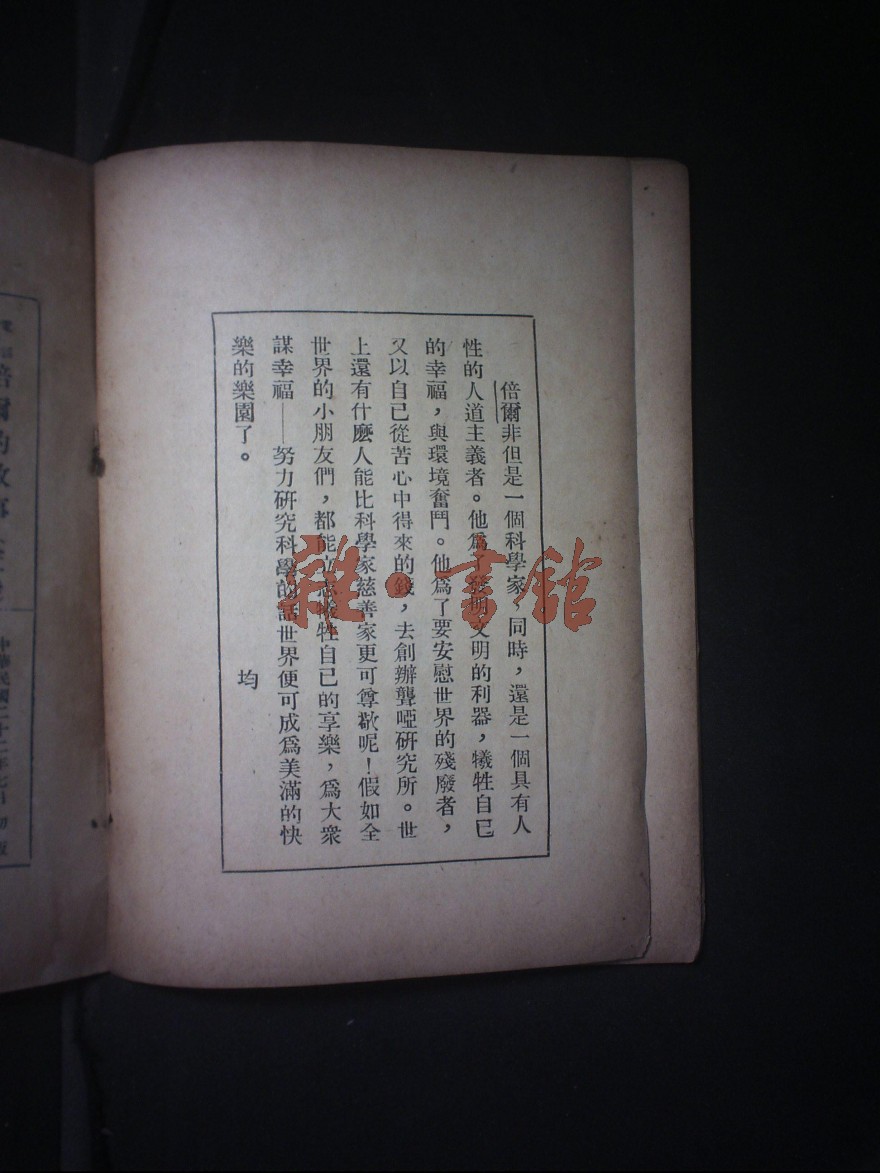 倍爾非但是一個科學家，同時，還是一個具有人
性的人道主義者。他爲了發明文明的利器，犧牲自已
的幸福，與環境奮鬥。他爲了要安慰世界的殘廢者，
又以自已從苦心中得來的錢，去創辦聾啞研究所。世
上還有什麽人能比科學家慈善家更可尊敬呢！假如全
世界的小朋友們，都能犧牲自已的享樂，爲大衆
謀幸福——努力研究科學的話世界便可成爲美滿的快
樂的樂園了。
均
雜·書館
倍爾的故事
中華民國二十二年七月初版